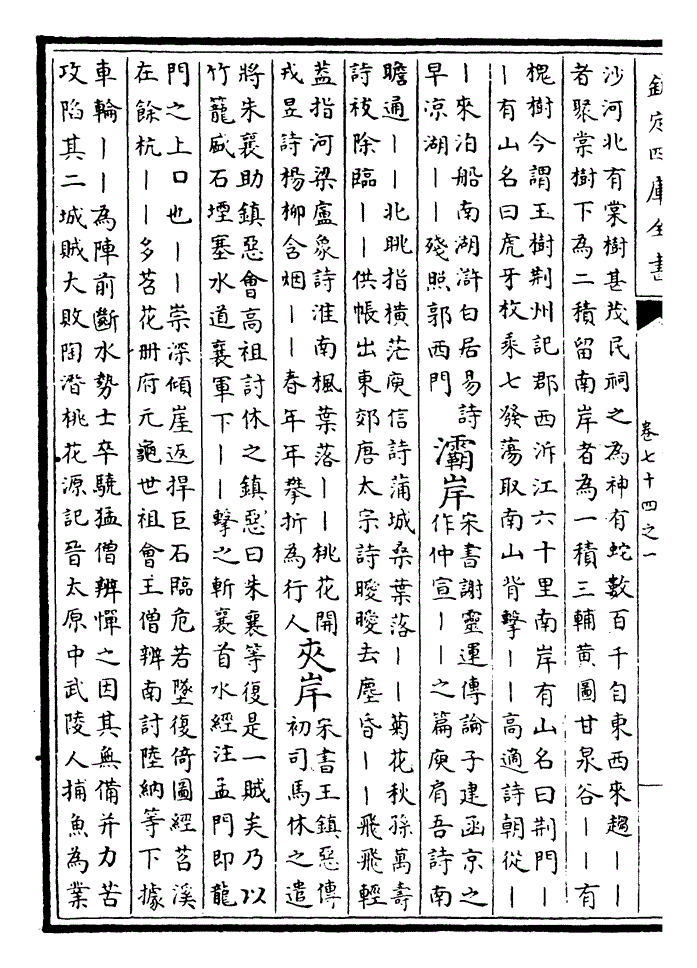 欽定四庫全書
卷七十四之一
沙河北有棠樹甚茂民祠之為神有蛇數百千自東西來趨｜｜
者聚棠樹下為二積留南岸者為一積三輔黃圖甘泉谷｜｜有
槐樹今謂玉樹荆州記郡西泝江六十里南岸有山名曰荆門｜
｜有山名曰虎牙枚乘七發蕩取南山背擊｜｜高適詩朝從｜
｜來泊船南湖滸白居易詩
早凉湖｜｜殘照郭西門
灞岸
宋書謝靈運傳論子建函京之
作仲宣｜｜之篇庾肩吾詩南
瞻通｜｜北眺指橫茫庾信詩蒲城桑葉落｜｜菊花秋孫萬壽
詩祓除臨｜｜供帳出東郊唐太宗詩曖曖去塵昏｜｜飛飛輕
葢指河梁盧象詩淮南楓葉落｜｜桃花開
戎昱詩楊柳含烟｜｜春年年攀折為行人
夾岸
宋書王鎮惡傳
初司馬休之遣
將朱襄助鎮惡會高祖討休之鎮惡曰朱襄等復是一賊矣乃以
竹籠盛石堙塞水道襄軍下｜｜擊之斬襄首水經注孟門即龍
門之上口也｜｜崇深傾崖返捍巨石臨危若墜復倚圖經苕溪
在餘杭｜｜多苕花冊府元龜世祖會王僧辨南討陸納等下據
車輪｜｜為陣前斷水勢士卒驍猛僧辨憚之因其無備并力苦
攻陷其二城賊大敗陶潛桃花源記晉太原中武陵人捕魚為業